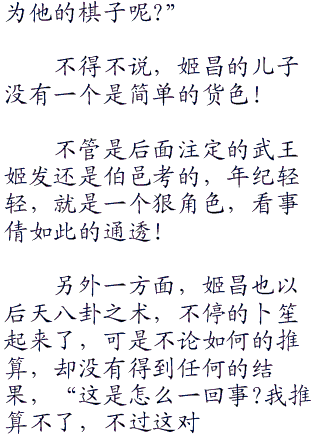 为他的棋子呢?”
不得不说，姬昌的儿子
没有一个是简单的货色！
不管是后面注定的武王
姬发还是伯邑考的，年纪轻
轻，就是一个狠角色，看事
倩如此的通透！
另外一方面，姬昌也以
后天八卦之术，不停的卜筮
起来了，可是不论如何的推
算，却没有得到任何的结
果，“这是怎么一回事?我推
算不了，不过这对